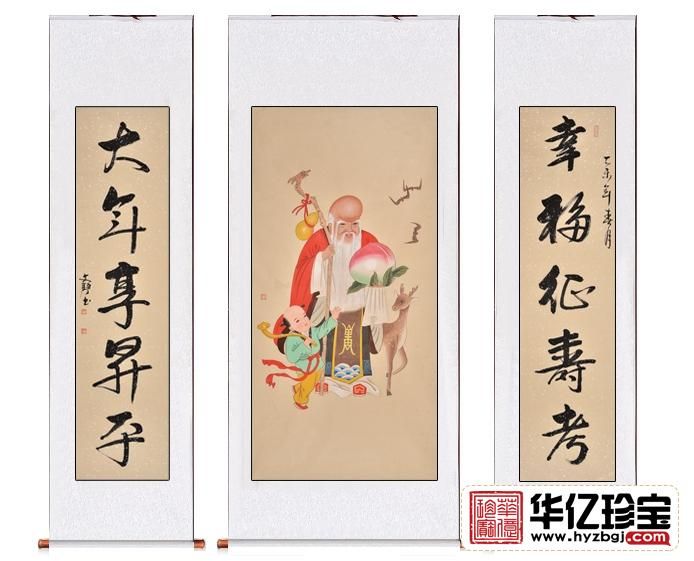 幸福征壽考
乙未年春月
大年享昇平
华亿珍宝
www.hyzbgj.com